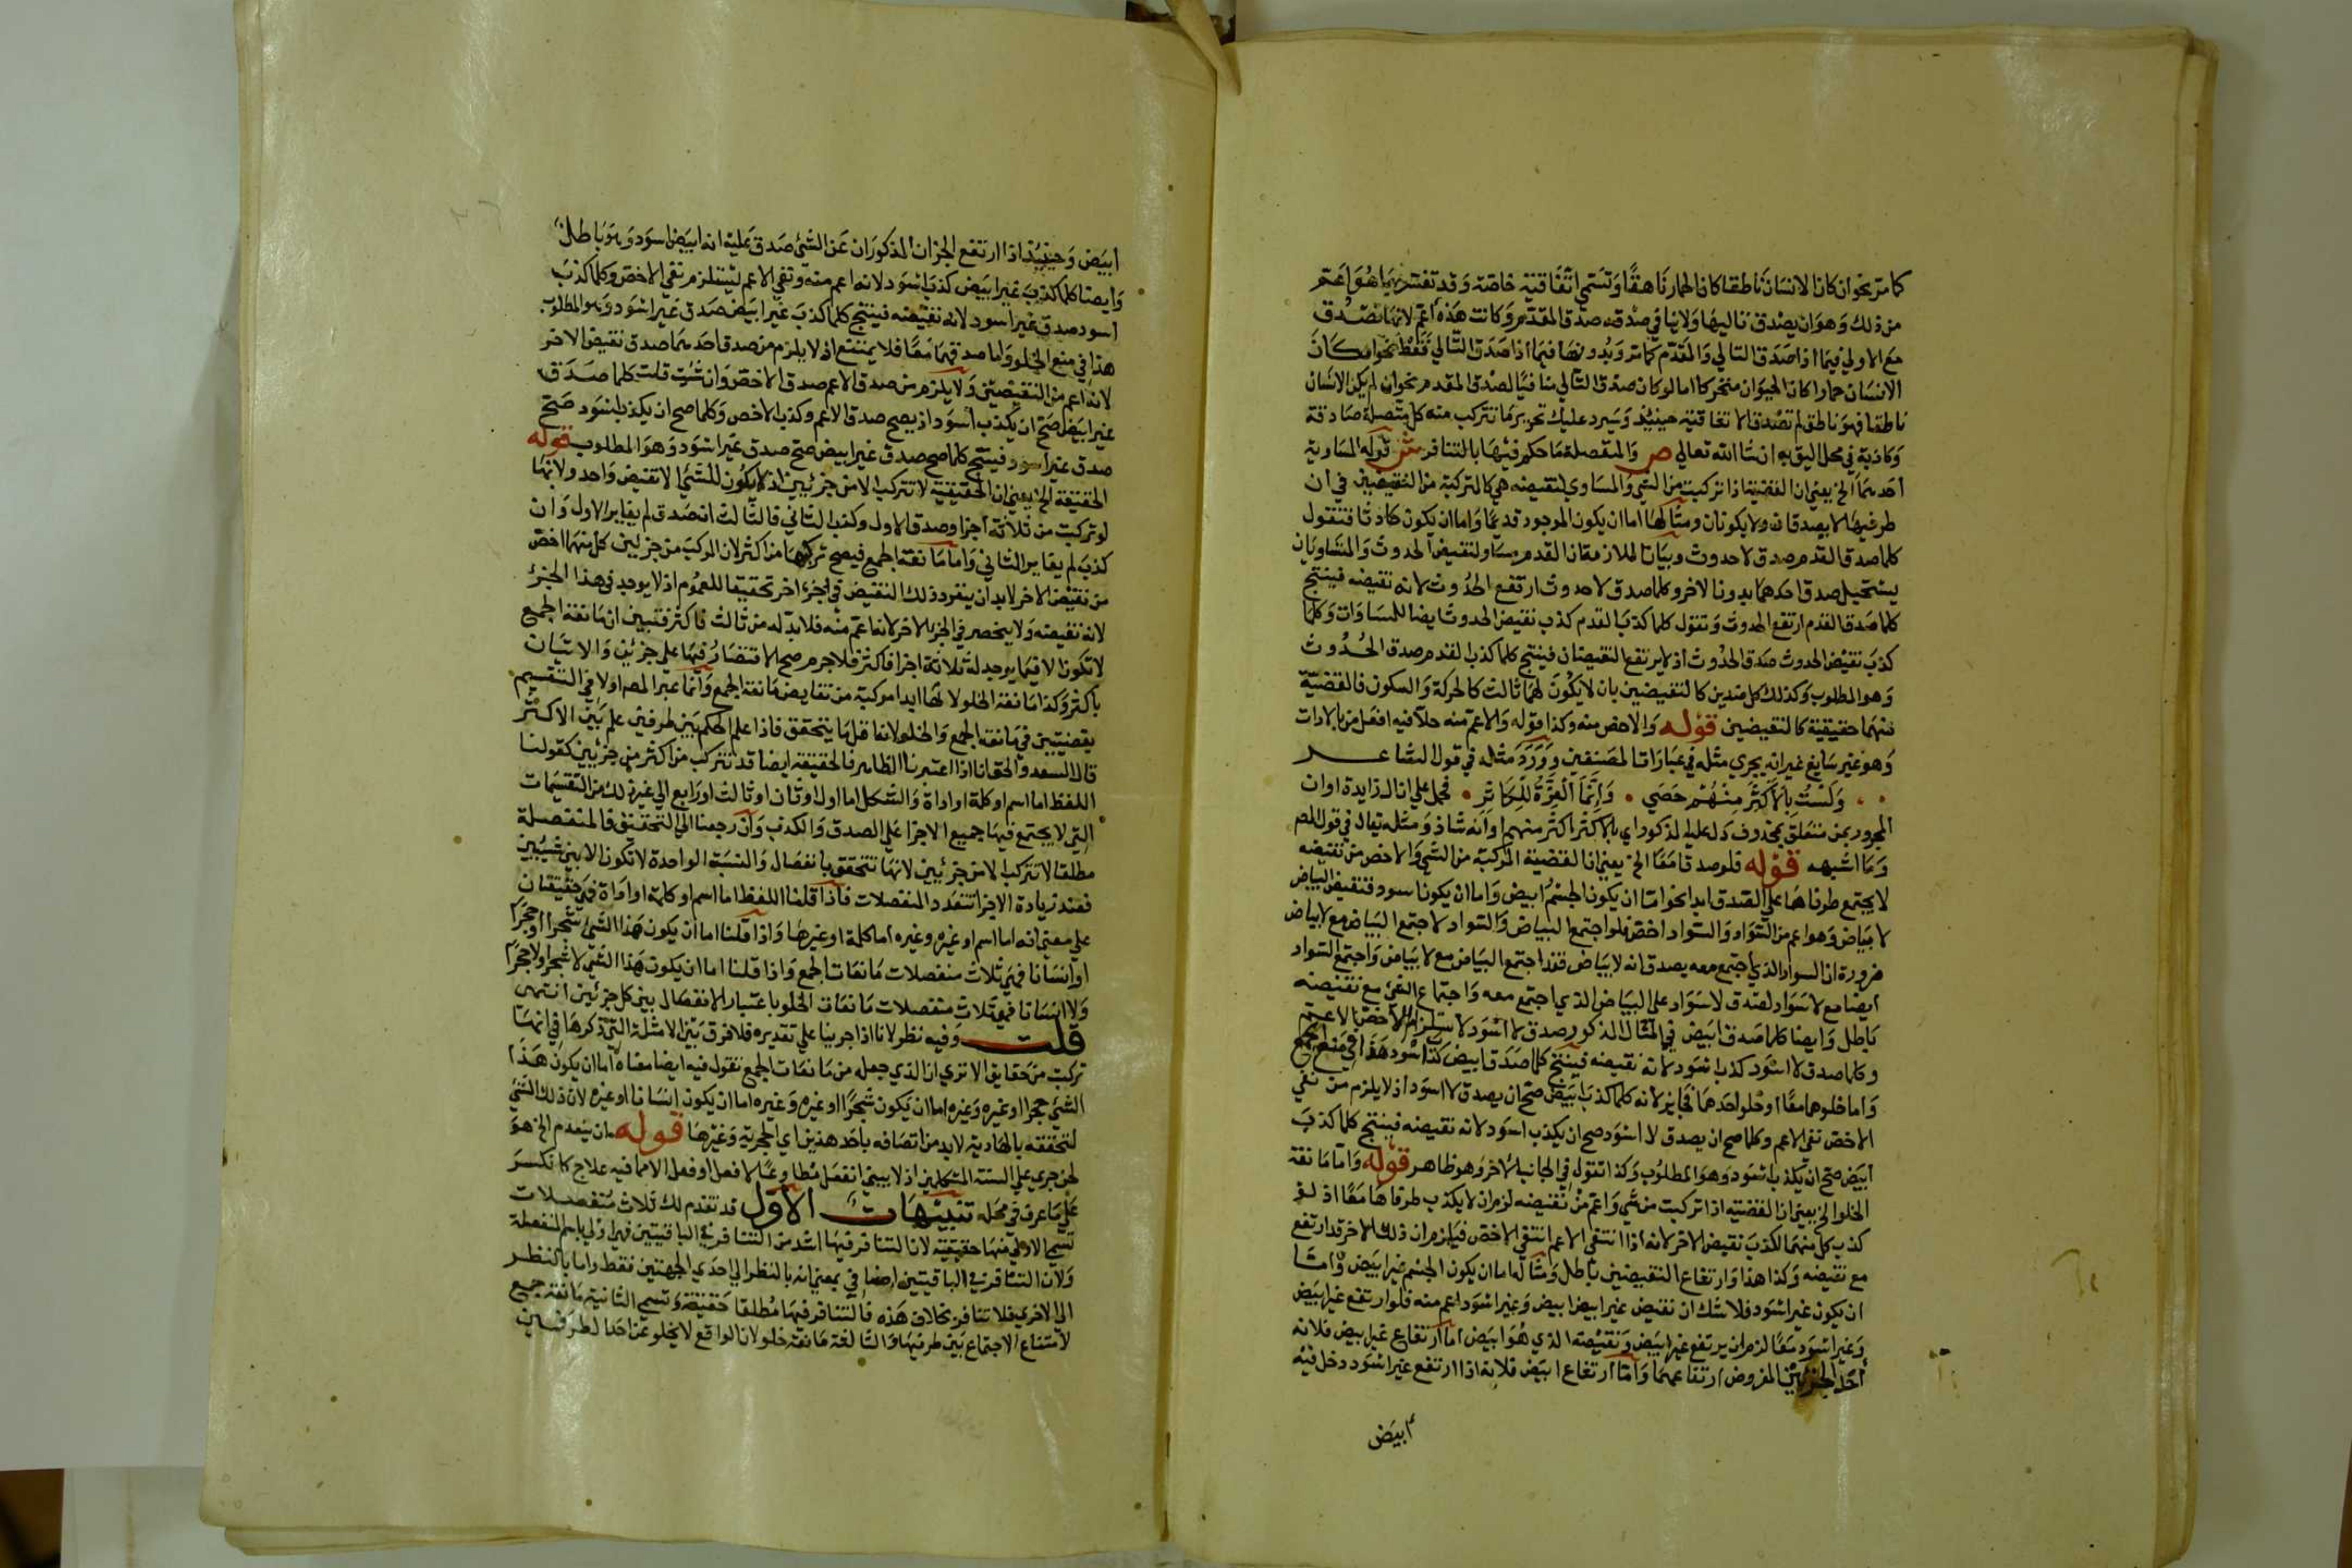 كما مر نحو ان كان الانسان ناطقا كان الحمار ناهقا وتسمى اتفاقية خاصة وقد تفسر بما هو اعم
من ذلك وهو ان يصدق تاليها ولا ينافي صدقه صدق المقدم وكانت هذه أعم لانها تصدق
مع الاولى فيما اذا صدق التالي والمقدم كما مر وبدونها فيما اذا صدق التالي فقط نحو ان كان
الانسان حمارا كان الحيوان متحركا اما لو كان صدق التالي منافيا لصدق المقدم نحو ان لم يكن الانسان
ناطقا فهو ناطق لم تصدق الاتفاقية حينئذ وسيرد عليك تحرير ما تتركب منه كل متصلة صادقة
وكاذبة في محل اليق به ان شا الله تعالى ص والمنفصلة ما حكم فيها بالتنافر ش قوله المساوية
أحدهما الخ يعني ان القضية اذا تركبت من الشي والمساوي لنقيضه هي كالتركبة من النقيضين في ان
طرفيها لا يصدقان ولا يكذبان ومثالها اما ان يكون الموجود قديما واما ان يكون حادثا فنقول
كلما صدق القدم صدق لا حدوث وبيان الملازمة ان القدم مساو لنقيض الحدوث والمتساويان
يستحيل صدق احدهما بدون الاخر وكلما صدق لا حدوث ارتفع الحدوث لانه نقيضه فينتج
كلما صدق القدم ارتفع الحدوث وتقول كلما كذب القدم كذب نقيض الحدوث ايضا للمساوات وكلما
كذب نقيض الحدوث صدق الحدوث اذ لا يرتفع النقيضان فينتج كلما كذب القدم صدق الحدوث
وهو المطلوب وكذلك كل ضدين كالنقيضين بان لا يكون لهما ثالث كالحركة والسكون فالقضية
منهما حقيقية كالنقيضين قوله والاخص منه وكذا قوله والاعم منه حلا فيه افعل من بالادات
وهو غير سايغ غير انه يجري مثله في عبارات المصنفين وورد مثله في قول الشاعر
ولست بالاكثر منهم حصى وانما العزة للكاثر فحمل على ان ال زايدة او ان
المجرور بمن متعلق بمحذوف دل عليه المذكور اي بالاكثر اكثر منهم او انه شاذ ومثله يقال في قول المص
وما اشبهه قوله فلو صدقا معا الخ يعني ان القضية المركبة من الشي والاخص من نقيضه
لا يجتمع طرفاها على الصدق ابدا نحو اما ان يكون الجسم ابيض واما ان يكون اسود فنقيض البياض
لا بياض وهو اعم من السواد والسواد اخص فلو اجتمع البياض والسواد لاجتمع البياض مع لا بياض
ضرورة ان السواد الذي اجتمع معه يصدق انه لا بياض فقد اجتمع البياض مع لا بياض واجتمع السواد
ايضا مع لا سواد لصدق لا سواد على البياض الذي اجتمع معه واجتماع الشي مع نقيضه
باطل وايضا كلما صدق ابيض في المثال المذكور صدق لا اسود لاستلزام الاخص الاعم
وكلما صدق لا اسود كذب اسود لانه نقيضه فينتج كلما صدق ابيض كذب اسود هذا في منع الجمع
واما خلوهما معا او خلو احدهما فجايز لانه كلما كذب ابيض صح ان يصدق لا اسود اذ لا يلزم من نفي
الاخص نفي الاعم وكلما صح ان يصدق لا اسود صح ان يكذب اسود لانه نقيضه فينتج كلما كذب
أبيض صح ان يكذب اسود وهو المطلوب وكذا تقول في الجانب الاخر وهو ظاهر قوله واما مانعة
الخلو الخ يعني ان القضية اذا تركبت من شي واعم من نقيضه لزم ان لا يكذب طرفاها معا اذ لو
كذب كل منهما لكذب نقيض الاخر لانه اذا انتفى الاعم انتفى الاخص فيلزم ان ذلك الاخر قد ارتفع
مع نقيضه وكذا هذا وارتفاع النقيضين باطل ومثاله اما ان يكون الجسم غير ابيض واما
ان يكون غير اسود فلا شك ان نقيض غير ابيض ابيض وغير اسود اعم منه فلو ارتفع غير ابيض
وغير اسود معا لزم ان يرتفع غير ابيض ونقيضه الذي هو ابيض اما ارتفاع غير ابيض فلانه
أحد الجزئين المفروض ارتفاعهما واما ارتفاع ابيض فلانه اذا ارتفع غير اسود دخل فيه
أبيض
أبيض وحينئذ اذا ارتفع الجزان المذكوران عن الشئ صدق عليه انه ابيض اسود وهو باطل
وايضا كلما كذب غير ابيض كذب اسود لانه اعم منه ونفي الاعم يستلزم نفي الاخص وكلما كذب
اسود صدق غير اسود لانه نقيضه فينتج كلما كذب غير ابيض صدق غير اسود وهو المطلوب
هذا في منع الخلو واما صدقهما معا فلا يمتنع اذ لا يلزم من صدق احدهما صدق نقيض الاخر
لانه اعم من النقيضين ولا يلزم من صدق الاعم صدق الاخص وان شئت قلت كلما صدق
غير ابيض صح ان يكذب أسود اذ يصح صدق الاعم وكذب الاخص وكلما صح ان يكذب اسود صح
صدق غير اسود فينتج كلما صح صدق غير ابيض صح صدق غير اسود وهو المطلوب قوله
الحقيقة الخ يعني ان الحقيقية لا تتركب الا من جزئين اذ لا يكون للشئ الا نقيض واحد ولانها
لو تركبت من ثلاثة أجزا وصدق الاول وكذب الثاني فالثالث ان صدق لم يغاير الاول وان
كذب لم يغاير الثاني واما مانعة الجمع فيصح تركبها من اكثر لان المركب من جزئين كل منهما اخص
من نقيض الاخر لا بد ان ينفرد ذلك النقيض في جزء اخر تحقيقا للعموم اذ لا يوجد في هذا الجزء
لانه نقيضه ولا ينحصر في الجزء الاخر لانه اعم منه فلا بد له من ثالث فاكثر فتبين ان مانعة الجمع
لا تكون الا فيما يوجد له ثلاثة اجزا فاكثر فلا جرم صح الاقتصار فيها على جزئين والاتيان
باكثر وكذا مانعة الخلو لانها ابدا مركبة من نقايض مانعة الجمع وانما عبر المص اولا في التقسيم
بقضيتين في مانعة الجمع والخلو لانه اقل ما يتحقق فاذا علم الحكم بين طرفين علم بين الاكثر
قال السعد والحق انا اذا اعتبرنا الظاهر فالحقيقة ايضا قد تتركب من اكثر من جزئين كقولنا
اللفظ اما اسم او كلمة او اداة والشكل اما اول او ثان او ثالث او رابع الى غير ذلك من التقسيمات
التي لا يجتمع فيها جميع الاجزا على الصدق والكذب وان رجعنا الى التحقيق فالمنفصلة
مطلقا لا تتركب الا من جزئين لانها تتحقق بانفصال والنسبة الواحدة لا تكون الا بين شيئين
فعند زيادة الاجزا تتعدد المنفصلات فاذا قلنا اللفظ اما اسم او كلمة او اداة فهي حقيقيتان
على معنى انه اما اسم او غيره وغيره اما كلمة او غيرها واذا قلنا اما ان يكون هذا الشئ شجرا او حجرا
او انسانا فهي ثلاث منفصلات مانعات الجمع واذا قلنا اما ان يكون هذا الشئ لا شجرا ولا حجرا
ولا انسانا فهي ثلاث منفصلات مانعات الخلو باعتبار الانفصال بين كل جزئين انتهى
قلت وفيه نظر لانا اذا جرينا على تقديره فلا فرق بين الامثلة التي ذكرها في انها
تركبت من حقايق الا ترى ان الذي جعله من مانعات الجمع نقول فيه ايضا معناه اما ان يكون هذا
الشئ حجرا او غيره وغيره اما ان يكون شجرا او غيره وغيره اما ان يكون انسانا او غيره لان ذلك الشئ
لتحققه بالهاذية لا بد من اتصافه باحد هذين اي الحجرية وغيرها قوله ان ينعدم الخ هو
لحن جرى على السنة المتكلمين اذ لا يبنى انفعل مطاوعا لا فعل او فعل الا مما فيه علاج كانكسر
على ما عرف في محله تنبيهات الاول قد تقدم لك ثلاث منفصلات
تسمى الاولى منها حقيقية لان التنافر فيها اشد من التنافر في الباقيتين فهي اولى باسم المنفصلة
ولان التنافر في الباقيتين اضافي بمعنى انه بالنظر الى احدى الجهتين فقط واما بالنظر
الى الاخرى فلا تنافر بخلاف هذه فالتنافر فيها مطلقا حقيقة وتسمى الثانية مانعة جمع
لامتناع الاجتماع بين طرفيها والثالثة مانعة خلو لان الواقع لا يخلو عن احد الطرفين